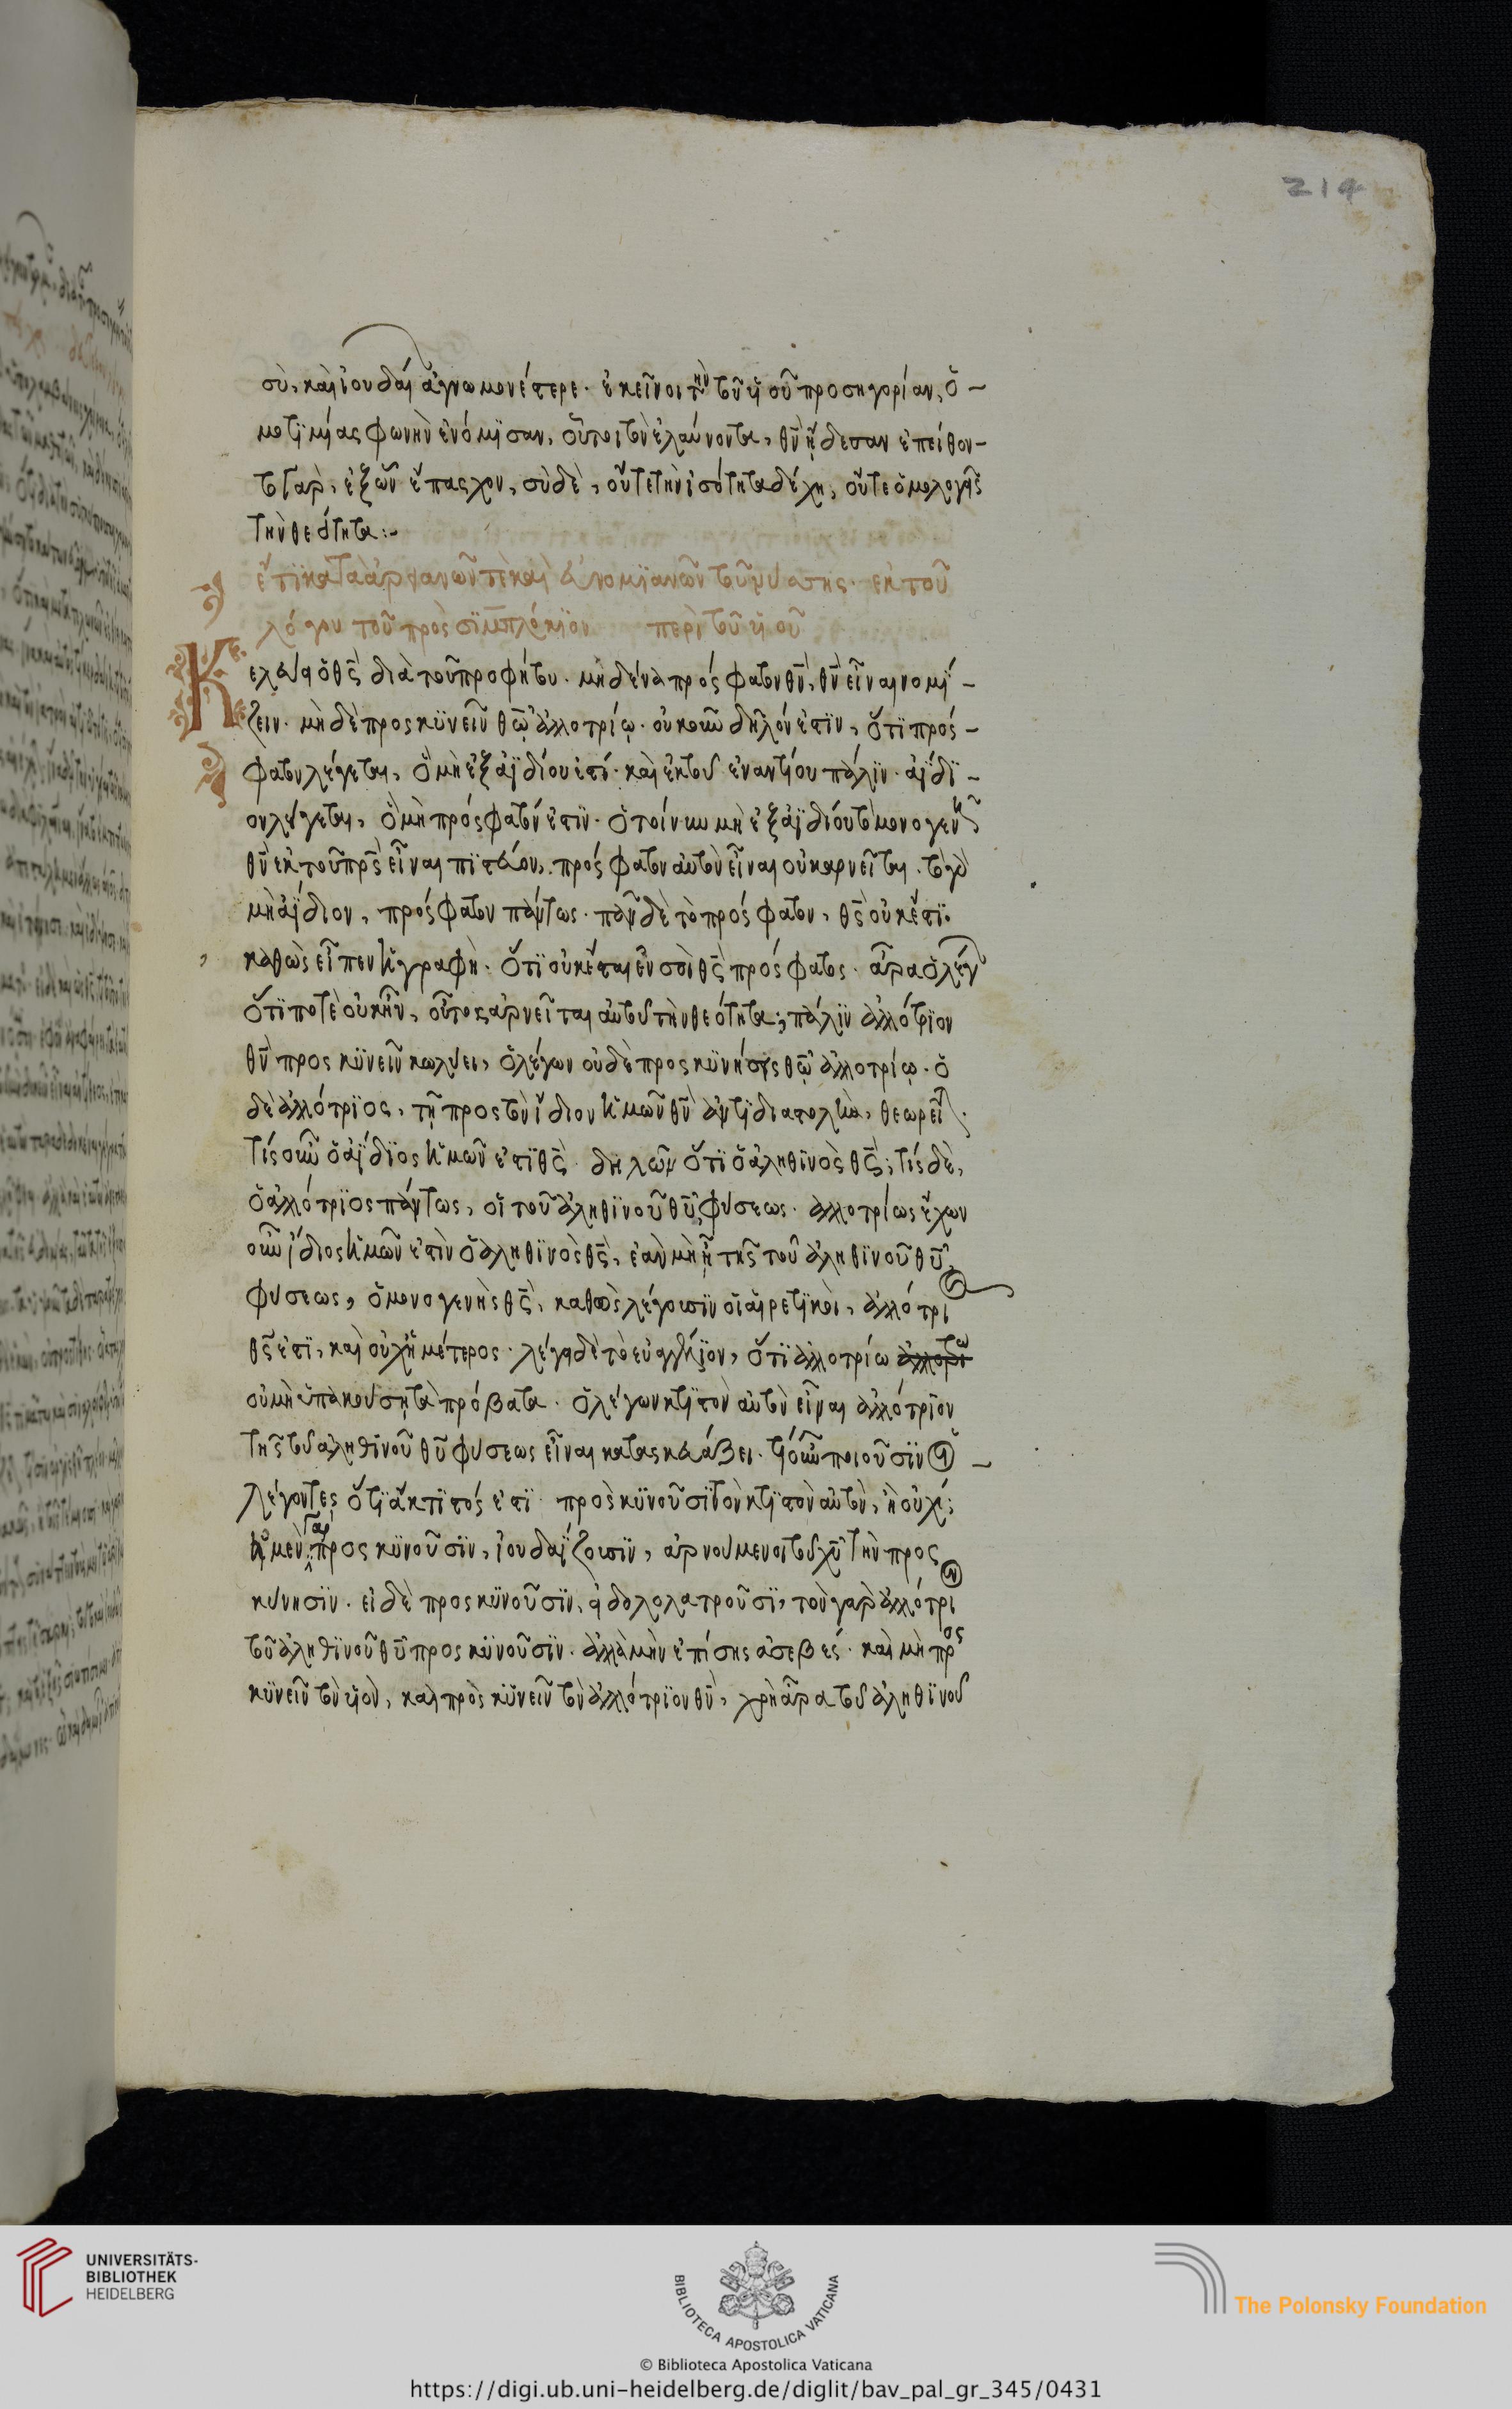 214
σὺ, καὶ ἰουδαί ἀγνωμονέστερε· ἐκεῖνοι τὴν τοῦ υἱοῦ προσηγορίαν, ὁ-
μοτϊμίας φωνὴν ἐνόμϊσαν, οὗτοι τὸν ἐλαύνοντα, θν̄ ᾔδεσαν ἐπείθον-
το γὰρ, ἐξ ὧν ἔπασχον, σὺ δὲ, οὔτε τὴν ἰσότητα δέχῃ, οὔτε ὁμολογεῖς
τὴν θεότητα:-
ἔτϊ κατὰ ἀρειανῶν τὲ καὶ εὐνομϊανῶν τοῦ νύσσης· ἐκ τοῦ
λόγου τοῦ πρὸς σϊμπλίκϊον περὶ τοῦ υἱοῦ
Κελεύει ὁ θς̄ διὰ τοῦ προφήτου· μηδένα πρόσφατον θν̄, θν̄ εἶναι νομί-
ζειν· μὴ δὲ προσκϋνεῖν θω̄ ἀλλοτρίῳ· οὐκοῦν δῆλόν ἐστϊν, ὅτϊ πρόσ-
φατον λέγεται, ὃ μὴ ἐξ ἀϊδίου ἐστί· καὶ ἐκ τοῦ ἐναντίου πάλϊν· ἀΐδϊ-
ον λέγεται, ὃ μὴ πρόσφατόν ἐστϊν· ὁ τοίνυν μὴ ἐξ ἀϊδίου τὸ μονογενῆ
θν̄ ἐκ τοῦ πρς̄ εἶναι πϊστεύων, πρόσφατον αὐτὸν εἶναι οὐκ αρνεῖται· τὸ γὰρ
μὴ ἀΐδιον, πρόσφατον πάντως· πᾶν δὲ τὸ πρόσφατον, θς̄ οὐκ ἔστϊ·
καθὼς εἶπεν ἡ γραφὴ· ὅτϊ οὐκ ἔσται ἐν σοὶ θς̄ πρόσφατος· ἆρα ὁ λέγων
ὅτϊ ποτὲ οὐκ ἦν, οὗτος αρνεῖται αὐτοῦ τὴν θεότητα; πάλϊν ἀλλότρϊον
θν̄ προσκϋνεῖν κωλύει, ὁ λέγων οὐδὲ προσκϋνήσεις θω̄ ἀλλοτρίῳ· ὁ
δὲ ἀλλότρϊος, τῇ προς τὸν ἴδιον ἡμῶν θν̄ ἀντϊδιαστολῆ, θεωρεῖται·
τίς οὖν ὁ ἀΐδϊος ἡμῶν ἐστϊ θς̄ δηλῶν ὅτϊ ὁ ἀληθϊνὸς θς̄; τίς δὲ,
ὁ ἀλλότρϊος πάντως, οἱ τοῦ ἀληθϊνοῦ θῡ φύσεως· ἀλλοτρίως ἔχων
οὖν ἴδιος ἡμῶν ἐστὶν ὁ ἀληθϊνὸς θς̄, ἐὰν μὴ ᾖ τῆς τοῦ ἀληθϊνοῦ θῡ
φύσεως, ὁ μονογενὴς θς̄, καθὼς λέγουσϊν οἱ αἱρετϊκοὶ, ἀλλότριος
θς̄ ἐστϊ, καὶ οὐχ ἡμέτερος· λέγει δὲ τὸ εὐαγγέλϊον, ὅτϊ ἀλλοτρίω
οὐ μὴ ὑπακούσῃ τὰ πρόβατα· ὁ λέγων κτϊστὸν αὐτὸν εἶναι ἀλλότρϊον
τῆς τοῦ αληθϊνοῦ θῡ φύσεως εἶναι κατασκευάζει· τί οὖν ποιοῦσϊν οἱ
λέγοντες ὅτϊ ἄκτϊστός ἐστϊ προσκϋνοῦσϊ τὸν κτϊστὸν αὐτὸν, ἢ οὐχί;
ἢ μὲν γαρ προσκϋνοῦσϊν, ἰουδαΐζουσϊν, αρνούμενοι τοῦ χῡ τὴν προς
κύνησϊν· εἰ δὲ προσκϋνοῦσϊν, εἰδολολατροῦσϊ, τὸν γαρ ἀλλότριον
τοῦ ἀληθϊνοῦ θῡ προσκϋνοῦσϊν· ἀλλὰ μὴν ἐπίσης ἀσεβές· καὶ μὴ προς
κϋνεῖν τὸν υἱὸν, καὶ προσκϋνεῖν τὸν ἀλλότρϊον θν̄, χρὴ ἆρα τοῦ ἀληθϊνοῦ
UNIVERSITÄTS-
BIBLIOTHEK
HEIDELBERG
BIBLIOTECA APOSTOLICA VATICANA
The Polonsky Foundation
© Biblioteca Apostolica Vaticana
https://digi.ub.uni-heidelberg.de/diglit/bav_pal_gr_345/0431